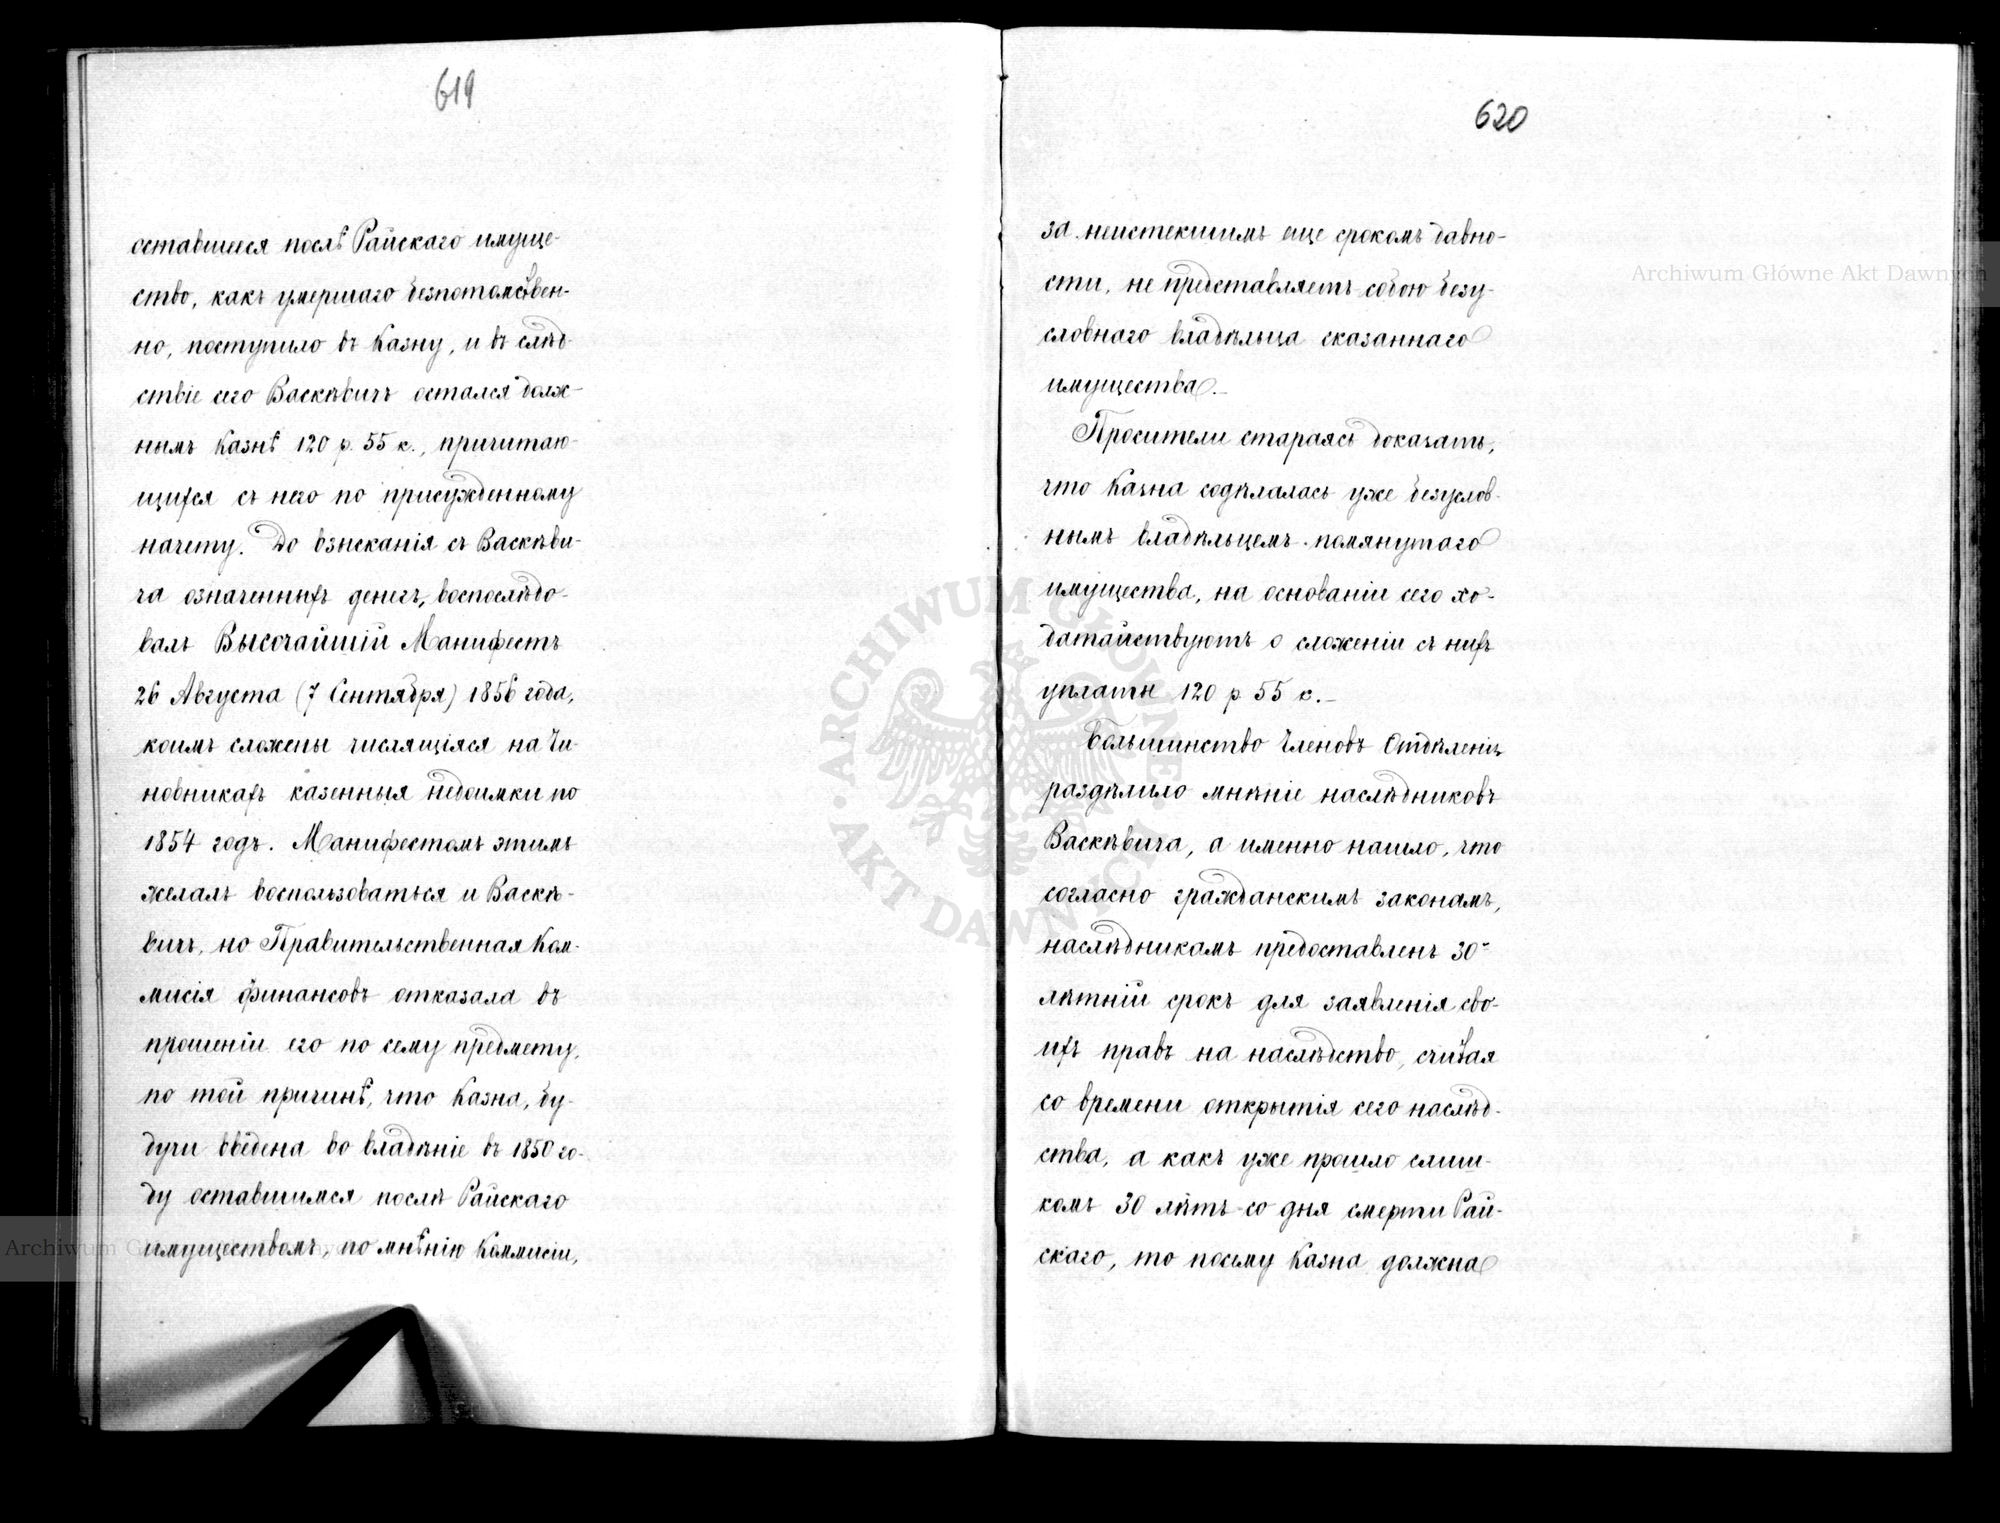 619
оставшееся послѣ Райскаго имуще-
ство, какъ умершаго безпотомствен-
но, поступило въ Казну, и въ слѣд-
ствіе сего Васкѣвичъ остался долж-
нымъ Казнѣ 120 р. 55 к., причитаю-
щихся съ него по присужденному
начету. До взысканія съ Васкѣви-
ча означенныхъ денегъ, воспослѣдо-
валъ Высочайшій Манифестъ
26 Августа (7 Сентября) 1856 года,
коимъ сложены числящіяся на Чи-
новникахъ казенныя недоимки по
1854 годъ. Манифестомъ этимъ
желалъ воспользоваться и Васкѣ-
вичъ, но Правительственная Ком-
мисія Финансовъ отказала въ
прошеніи его по сему предмету,
по той причинѣ, что Казна, бу-
дучи введена во владѣніе въ 1850 го-
ду оставшимся послѣ Райскаго
имуществомъ, по мнѣнію Коммисіи,
620
за неистекшимъ еще срокомъ давно-
сти, не представляетъ собою безу-
словнаго владѣльца сказаннаго
имущества.-
Просители стараясь доказать,
что Казна содѣлалась уже безуслов-
нымъ владѣльцемъ помянутаго
имущества, на основаніи сего хо-
датайствуютъ о сложеніи съ нихъ
уплаты 120 р. 55 к.-
Большинство Членовъ Отдѣленія
раздѣлило мнѣніе наслѣдниковъ
Васкѣвича, а именно нашло, что
согласно гражданскимъ законамъ,
наслѣдникамъ предоставленъ 30-
лѣтній срокъ для заявленія сво-
ихъ правъ на наслѣдство, считая
со времени открытія сего наслѣд-
ства, а какъ уже прошло слиш-
комъ 30 лѣтъ со дня смерти Рай-
скаго, то посему Казна должна
Archiwum Główne Akt Dawnych
ARCHIWUM GŁÓWNE AKT DAWNYCH